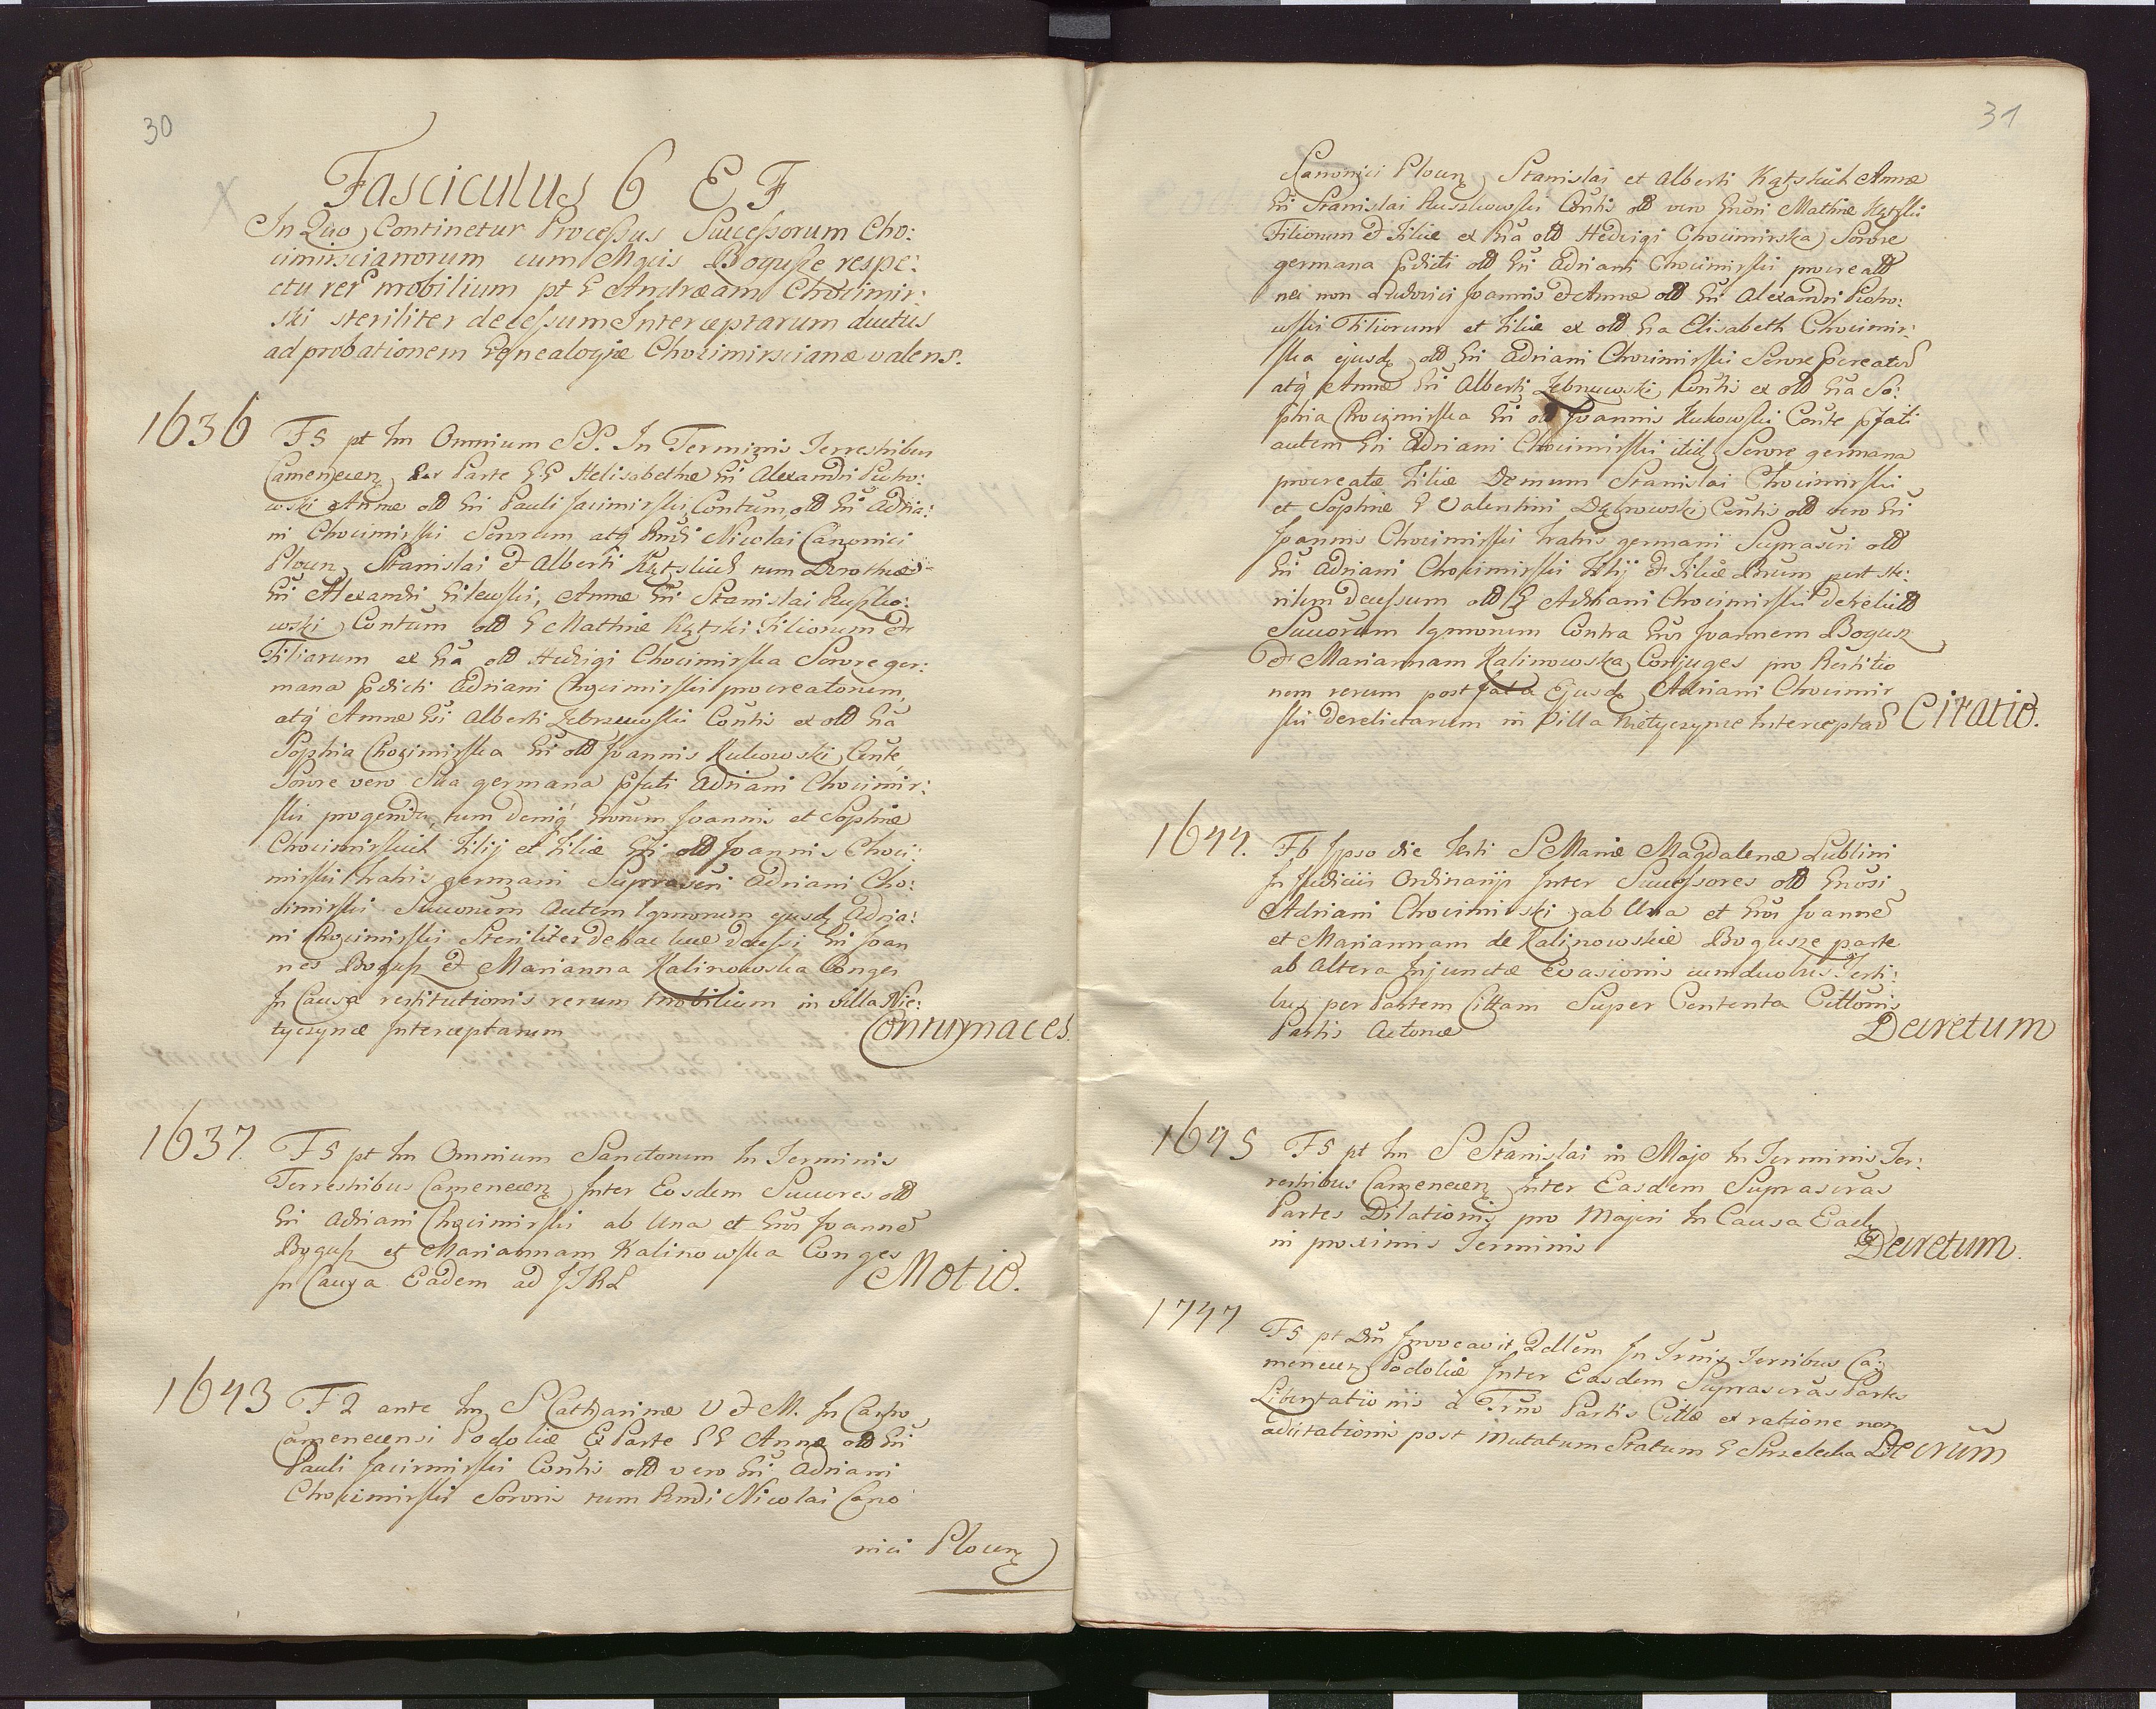 30
Fasciculus 6 E F
In Quo Continetur Processus Successorum Cho:
cimirscianorum cum Mgcis Bogusze respe:
ctu rer mobilium pt G Andræam Chocimir:
ski steriliter decessum Interceptarum ductus
ad probationem Genealogiæ Chocimirscianæ valens.
1636 F5 pt fm Omnium SS. In Terminis Terrestribus
Camenecen Ex Parte GG Helisabethæ Gni Alexandri Piotro:
wski Annæ olld Gni Pauli Jacimirski, Contum, olld Gni Adria:
ni Chocimirski Sororum atq Rndi Nicolai Canonici
Plocen Stanislai et Alberti Kątskich tum Dorotheæ
Gni Alexandri Gilewski, Annæ Gni Stanislai Ruszko:
wski Contum olld G Mathiæ Kątski Filiorum et
Filiarum ex Gna olld Hedvigi Chocimirska Sorore ger:
mana pdicti Adriani Chocimirski procreatorum,
atq Annæ Gni Alberti Zebrzewski Contis ex olld Gna
Sophia Chocimirska Gni olld Joannis Kukowski Conte,
Sorore vero Sua germana pfati Adriani Chocimir:
ski progenita, tum deniq Gnorum Joannis et Sophiæ
Chocimirskich Filij et Filiæ Gni olld Joannis Choci:
mirski Fratris germani Suprascri Adriani Cho:
cimirski Succorum autem Ipmorum ejusd Adria:
ni Chocimirski Steriliter de hac luce decessi, Gni Joan
nes Bogusz et Marianna Kalinowska Conges
In Causa restitutionis rerum mobilium in villa Nie:
tyczyncæ Interceptarum Contumaces.
1637. F5 pt fm Omnium Sanctorum In Terminis
Terrestribus Camenecen Inter Eosdem Succores olld
Gni Adriani Chocimirski ab Una et Gnos Joannē
Bogusz et Mariannam Kalinowska Conges
In Causa Eadem ad JTRL Motio.
1643 F2 ante fm S Catharinæ V et M. In Castro
Camenecensi Podoliæ Ex Parte GG Annæ olld Gni
Pauli Jacirmirski Contis olld vero Gni Adriani
Chocimirski Sororis tum Rndi Nicolai Cano
nici Plocen
31
Canonici Plocen Stanislai et Alberti Kątskich Annæ
Gni Stanislai Ruszkowski Contis olld vero Gnosi Mathiæ Kątski
Filiorum et Filiæ ex Gna olld Hedvigi Chocimirska Sorore
germana pdicti olld Gni Adriani Chocimirski procreatt
nec non Ludovici Joannis et Annæ olld Gni Alexandri Piotro:
wski Filiorum et Filiæ ex olld Gna Elisabeth Chocimir:
ska ejusd olld Gni Adriani Chocimirski Sorore pcreator
atq Annæ Gni Alberti Zebrzewski Contis ex olld Gna So:
phia Chocimirska Gni olld Joannis Kukowski Conte pfati
autem Gni Adriani Chocimirski itid Sorore germana
procreatæ Filiæ Demum Stanislai Chocimirski
et Sophiæ G Valentini Dąbrowski Contis olld vero Gni
Joannis Chocimirski Fratris germani Suprascri olld
Gni Adriani Chocimirski Filij et Filiæ Bnum post ste:
rilem decessum olld G Adriani Chocimirski derelictt
Succorum Ipmorum Contra Gnos Joannem Bogusz
et Mariannam Kalinowska Conjuges pro Restitio
nem rerum post fata Ejusd Adriani Chocimir
ski derelictarum in Villa Nietyczynce Interceptar Citatio.
1644. F6 Ipso die Festi S Mariæ Magdalenæ Lublini
In Judiciis Ordinarijs Inter Successores olld Gnosi
Adriani Chocimirski ab Una et Gnos Joannē
et Mariannam de Kalinowskie Bogusze parte
ab Altera Injunctæ Evasionis cum duobus Testi:
bus per Partem Cittam Super Contenta Cittonis
Partis Actoreæ Decretum
1645 F5 pt fm S Stanislai in Majo In Terminis Ter:
restribus Camenecen Inter Easdem Suprascras
Partes Dilationis pro Majori In Causa Ead
in proximis Terminis Decretum.
1747 F5 pt Dni Invocavit Qdllem In Trnis Terribus Ca:
menecen Podoliæ Inter Easdem Suprascras Partes
Libertationis a Trno Partis Cittæ ex ratione non
adcitationis post mutatum Statum G Strzelecka Decrum